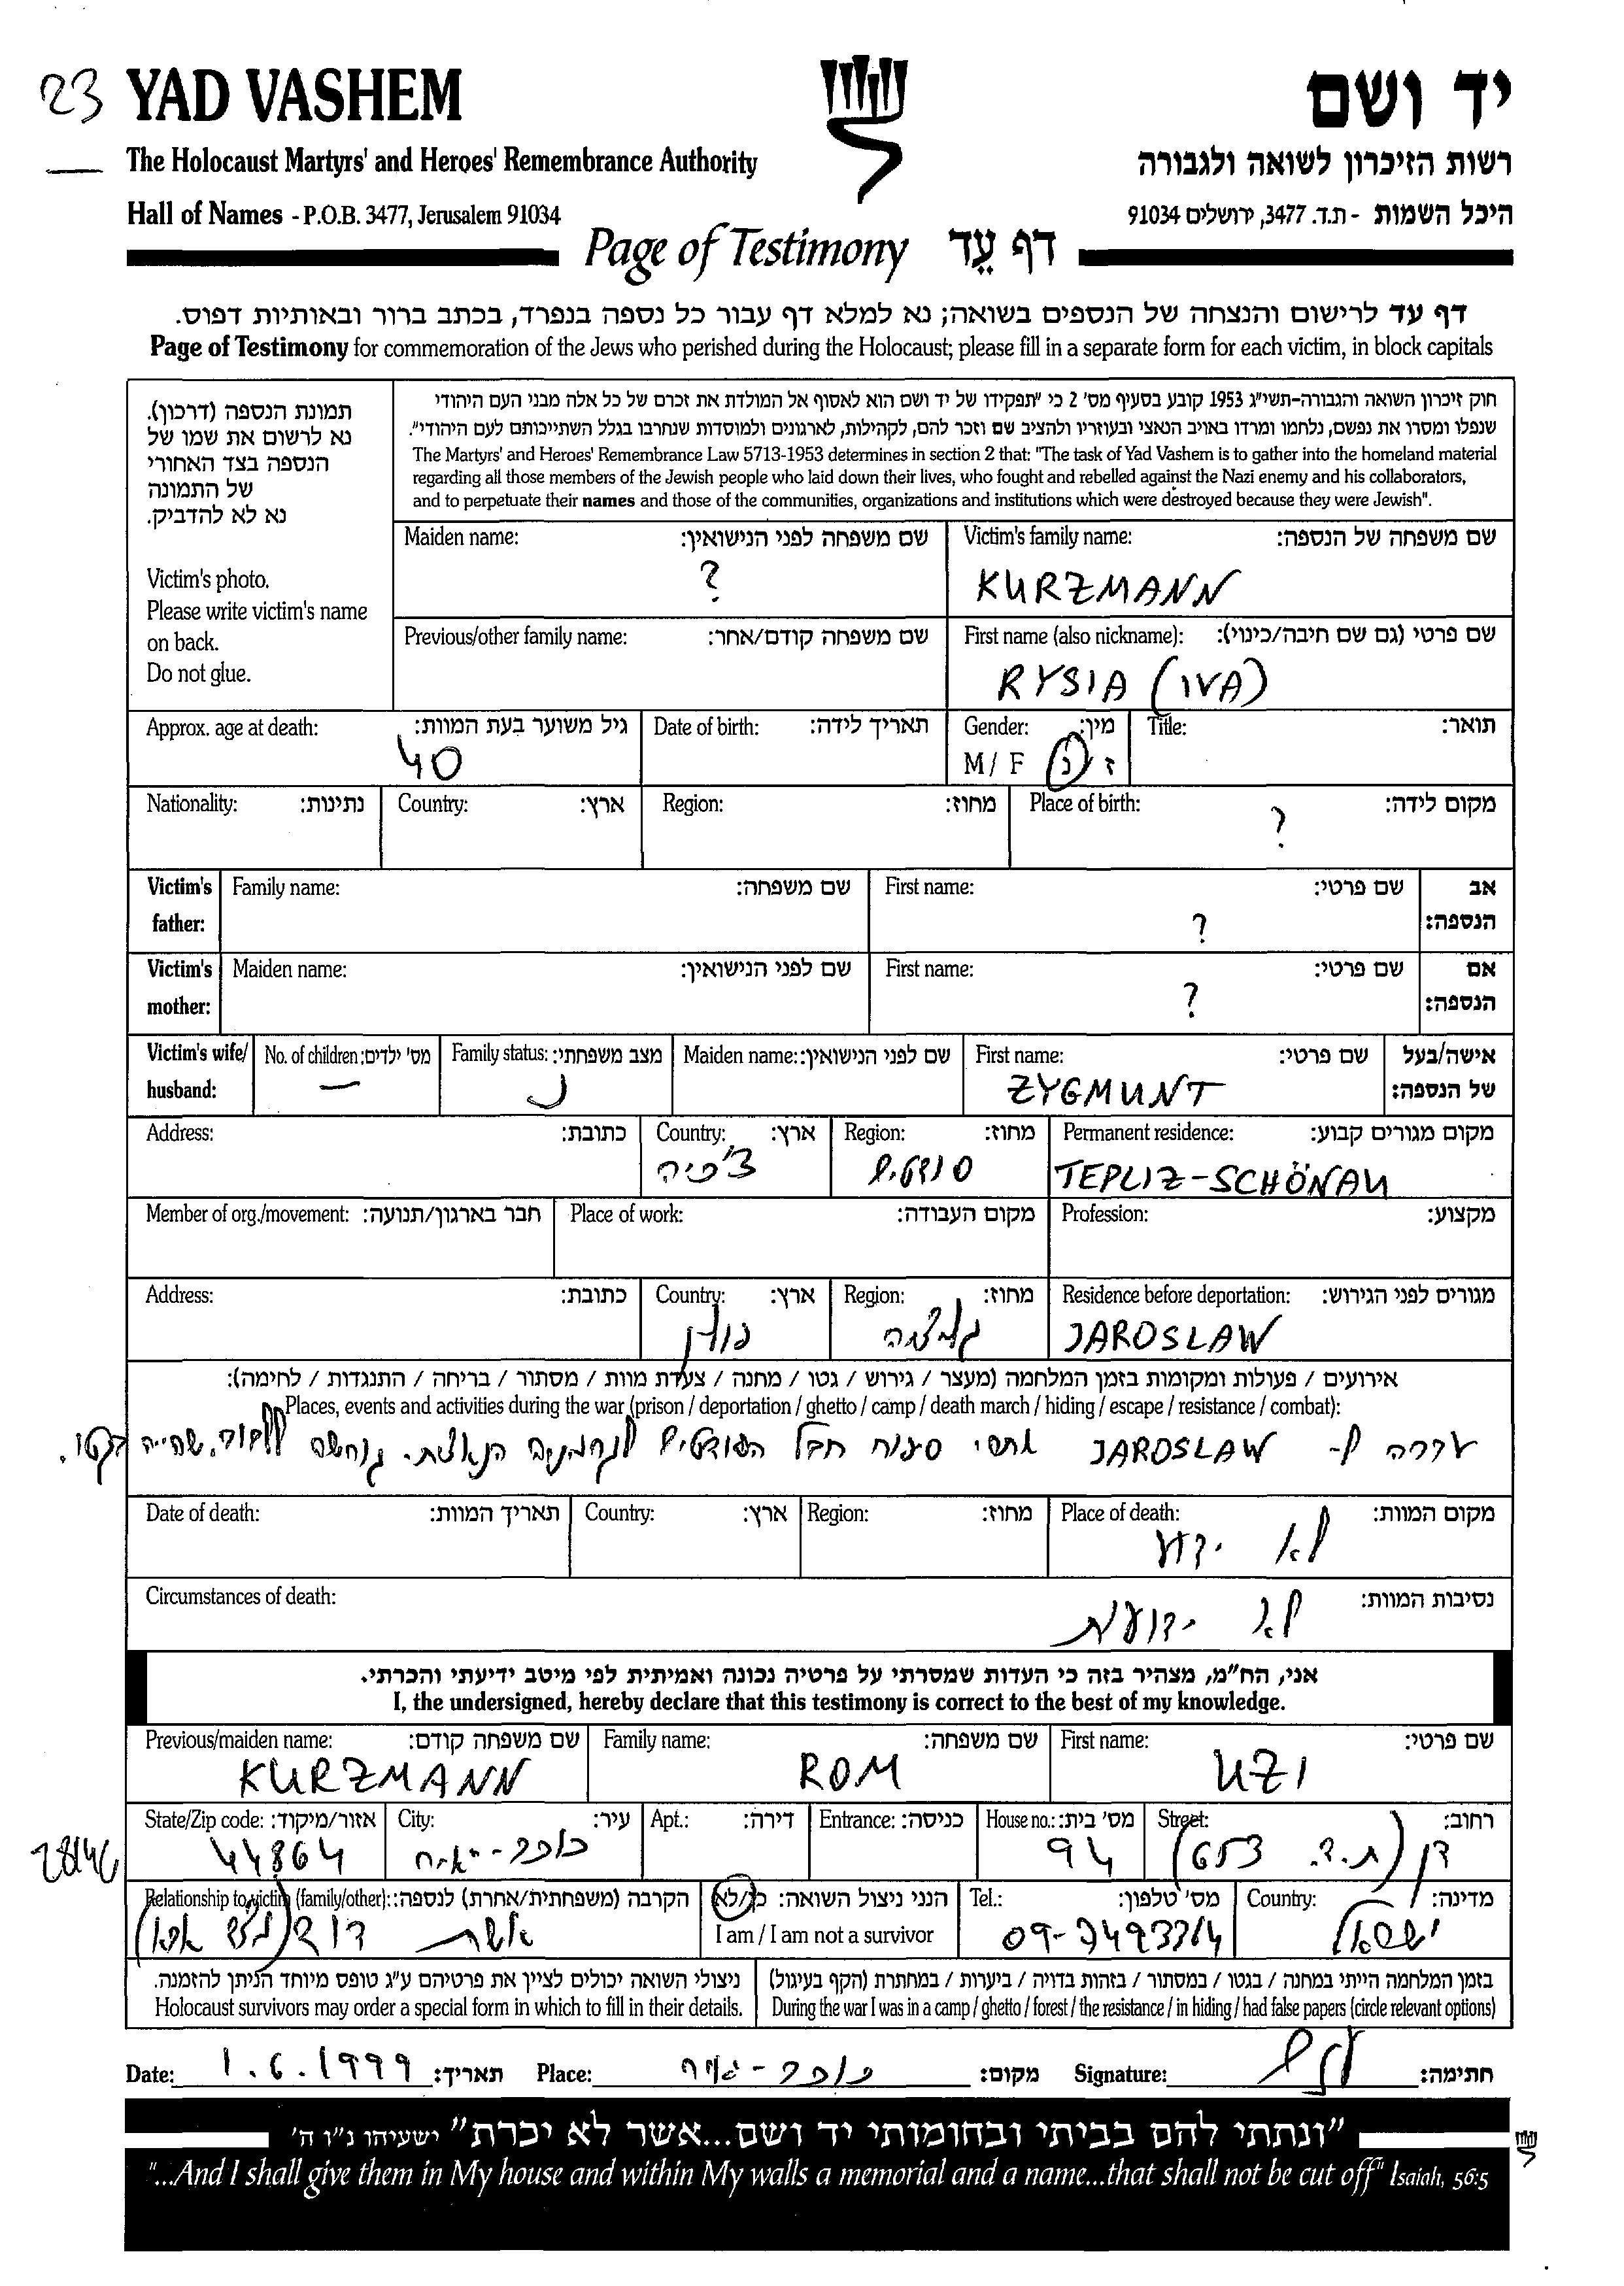 23
YAD VASHEM
יד ושם
The Holocaust Martyrs' and Heroes' Remembrance Authority
רשות הזיכרון לשואה ולגבורה
Hall of Names - P.O.B. 3477, Jerusalem 91034
היכל השמות - ת.ד. 3477, ירושלים 91034
Page of Testimony דף עֵד
דף עד לרישום והנצחה של הנספים בשואה; נא למלא דף עבור כל נספה בנפרד, בכתב ברור ובאותיות דפוס.
Page of Testimony for commemoration of the Jews who perished during the Holocaust; please fill in a separate form for each victim, in block capitals
תמונת הנספה (דרכון).
נא לרשום את שמו של
הנספה בצד האחורי
של התמונה
נא לא להדביק.
Victim's photo.
Please write victim's name
on back.
Do not glue.
חוק זיכרון השואה והגבורה-תשי"ג 1953 קובע בסעיף מס' 2 כי "תפקידו של יד ושם הוא לאסוף אל המולדת את זכרם של כל אלה מבני העם היהודי
שנפלו ומסרו את נפשם, נלחמו ומרדו באויב הנאצי ובעוזריו ולהציב שם וזכר להם, לקהילות, לארגונים ולמוסדות שנחרבו בגלל השתייכותם לעם היהודי".
The Martyrs' and Heroes' Remembrance Law 5713-1953 determines in section 2 that: "The task of Yad Vashem is to gather into the homeland material
regarding all those members of the Jewish people who laid down their lives, who fought and rebelled against the Nazi enemy and his collaborators,
and to perpetuate their names and those of the communities, organizations and institutions which were destroyed because they were Jewish".
Maiden name: שם משפחה לפני הנישואין:
?
Victim's family name: שם משפחה של הנספה:
KURZMANN
Previous/other family name: שם משפחה קודם/אחר:
First name (also nickname): שם פרטי (גם שם חיבה/כינוי):
RYSIA (IVA)
Approx. age at death: גיל משוער בעת המוות:
40
Date of birth: תאריך לידה:
Gender: מין:
M / F ז / נ
Title: תואר:
Nationality: נתינות:
Country: ארץ:
Region: מחוז:
Place of birth: מקום לידה:
?
Victim's father: Family name: שם משפחה:
First name: שם פרטי: אב הנספה:
?
Victim's mother: Maiden name: שם לפני הנישואין:
First name: שם פרטי: אם הנספה:
?
Victim's wife/ husband: No. of children: מס' ילדים:
—
Family status: מצב משפחתי:
נ
Maiden name: שם לפני הנישואין:
First name: שם פרטי: אישה/בעל של הנספה:
ZYGMUNT
Address: כתובת:
Country: ארץ:
צ'כיה
Region: מחוז:
סודטים
Permanent residence: מקום מגורים קבוע:
TEPLIZ-SCHÖNAU
Member of org./movement: חבר בארגון/תנועה:
Place of work: מקום העבודה:
Profession: מקצוע:
Address: כתובת:
Country: ארץ:
פולין
Region: מחוז:
גליציה
Residence before deportation: מגורים לפני הגירוש:
JAROSLAW
אירועים / פעולות ומקומות בזמן המלחמה (מעצר / גירוש / גטו / מחנה / צעדת מוות / מסתור / בריחה / התנגדות / לחימה):
Places, events and activities during the war (prison / deportation / ghetto / camp / death march / hiding / escape / resistance / combat):
עברה ל- JAROSLAW אחרי סיפוח חבל הסודטים לגרמניה הנאצית. גורשה ללבוב, שהייה בגטו.
Date of death: תאריך המוות:
Country: ארץ:
Region: מחוז:
Place of death: מקום המוות:
לא ידוע
Circumstances of death: נסיבות המוות:
לא ידועות
אני, הח"מ, מצהיר בזה כי העדות שמסרתי על פרטיה נכונה ואמיתית לפי מיטב ידיעתי והכרתי.
I, the undersigned, hereby declare that this testimony is correct to the best of my knowledge.
Previous/maiden name: שם משפחה קודם:
KURZMANN
Family name: שם משפחה:
ROM
First name: שם פרטי:
UZI
State/Zip code: אזור/מיקוד:
44864
City: עיר:
כוכב-יאיר
Apt.: דירה:
Entrance: כניסה:
House no.: מס' בית:
94
Street: רחוב:
דן (ת.ד. 653)
28146
Relationship to victim (family/other): הקרבה (משפחתית/אחרת) לנספה:
אשת דוד (מצד אבא)
הנני ניצול השואה: כן/לא
I am / I am not a survivor
Tel.: מס' טלפון:
09-7493314
Country: מדינה:
ישראל
ניצולי השואה יכולים לציין את פרטיהם ע"ג טופס מיוחד הניתן להזמנה.
Holocaust survivors may order a special form in which to fill in their details.
בזמן המלחמה הייתי במחנה / בגטו / במסתור / בזהות בדויה / ביערות / במחתרת (הקף בעיגול)
During the war I was in a camp / ghetto / forest / the resistance / in hiding / had false papers (circle relevant options)
Date: 1.6.1999 תאריך: Place: כוכב-יאיר מקום: Signature: חתימה:
"ונתתי להם בביתי ובחומותי יד ושם...אשר לא יכרת" ישעיהו נ"ו ה'
"...And I shall give them in My house and within My walls a memorial and a name...that shall not be cut off" Isaiah, 56:5